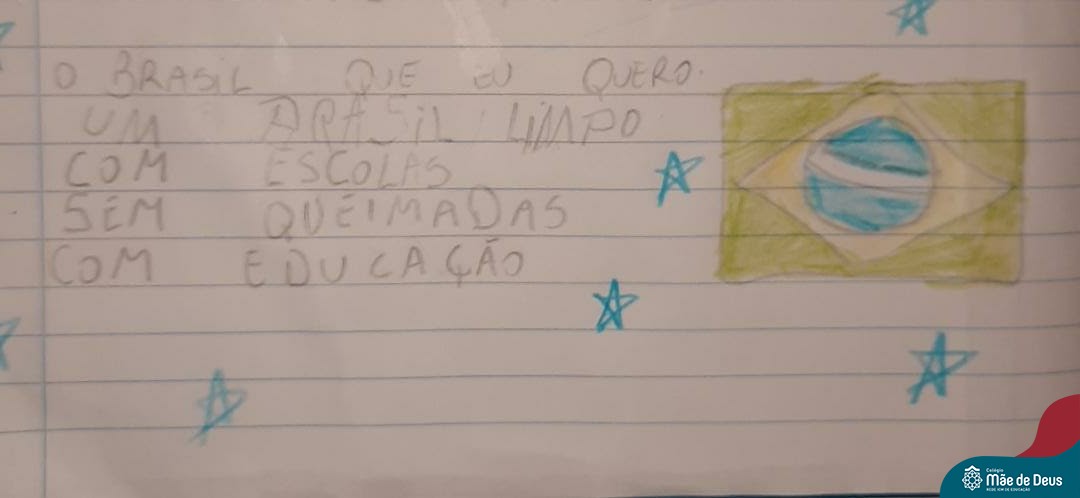 O BRASIL QUE EU QUERO.
UM BRASIL LIMPO
COM ESCOLAS
SEM QUEIMADAS
COM EDUCAÇÃO
Colégio
Mãe de Deus
REDE ICM DE EDUCAÇÃO